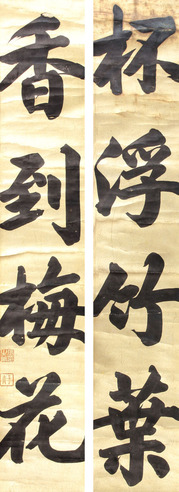 杯浮竹葉
香到梅花